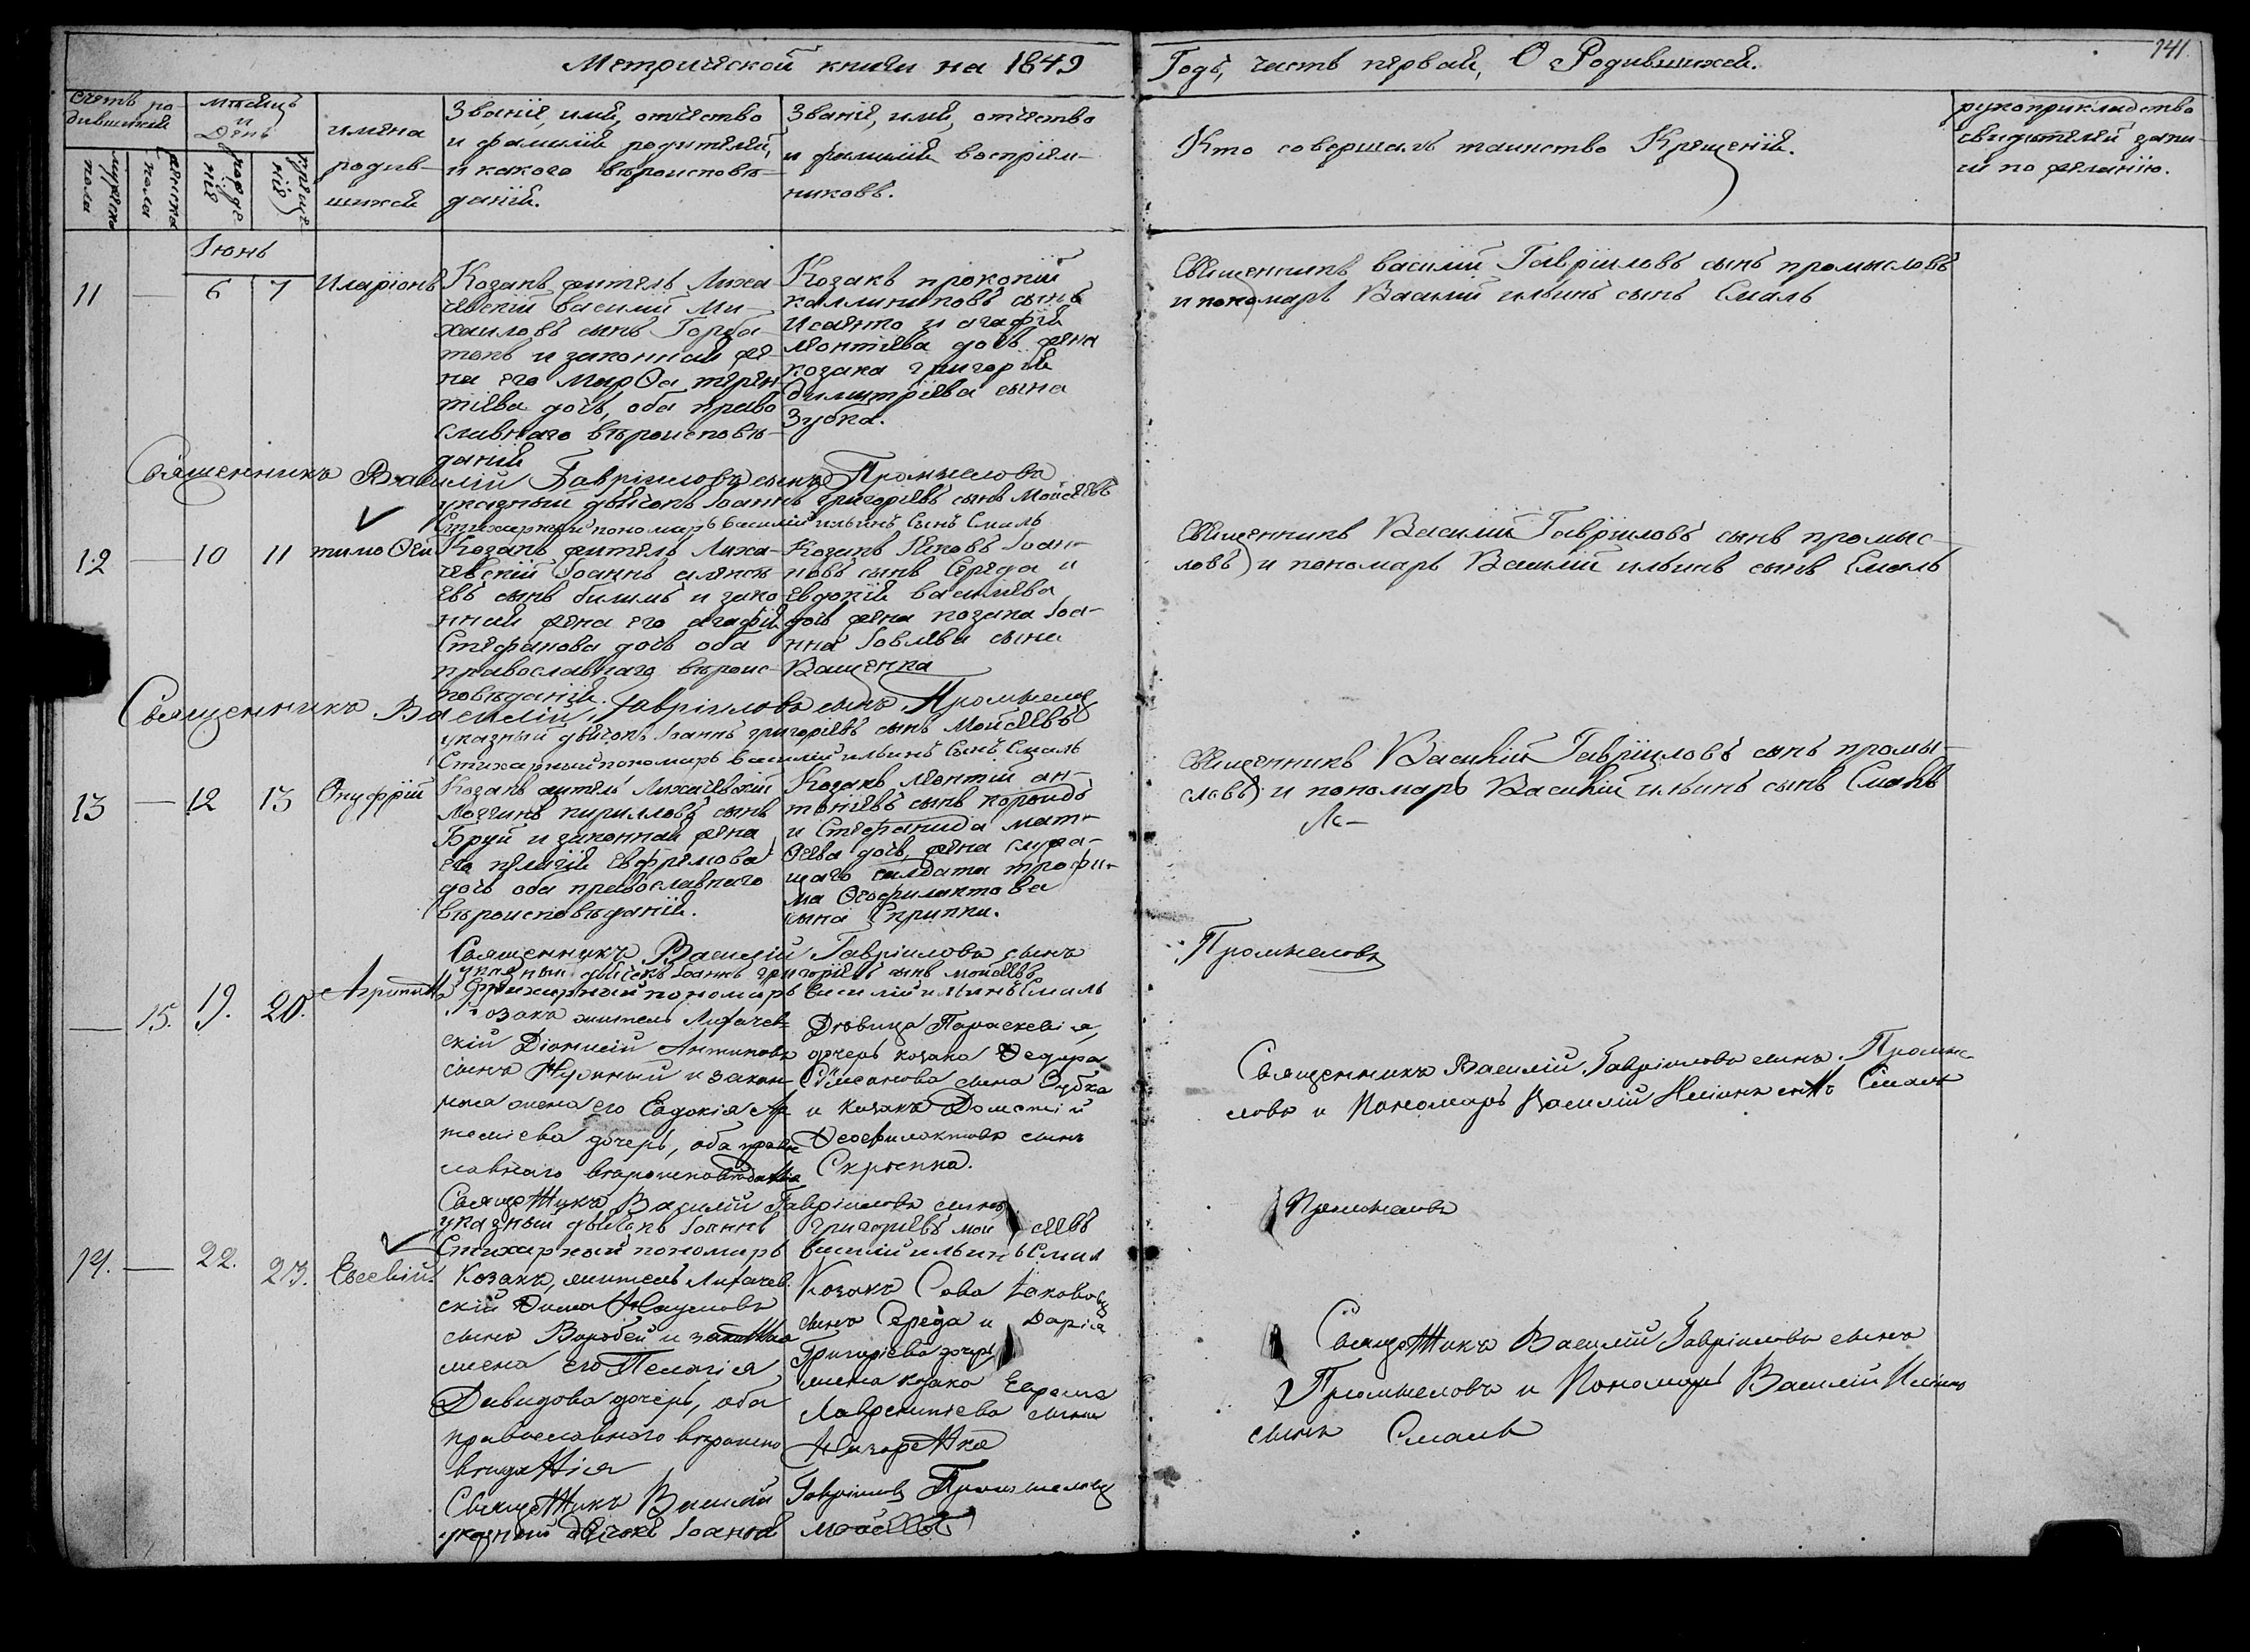 141.
Метрической книги на 1849 Годъ, часть первая, О Родившихся.
Счетъ родившихся
мужеска пола
женска пола
Месяцъ и День
рождения
крещения
имена родившихся
Званіе, имя, отчество
и фамилія родителей,
и какого вѣроисповѣ-
данія.
Званіе, имя, отчество
и фамилія воспріем-
никовъ.
Кто совершалъ таинство Крещенія.
рукоприкладство
свидетелей запи-
си по желанію.
Іюнь
11 — 6 7 Иларіонъ
Козакъ житель Лиха-
чевскій Василій Ми-
хаиловъ сынъ Горба-
тенко и законная же-
на его Марѳа терен-
тіева дочь, оба право
славнаго вѣроисповѣ-
данія
Козакъ прокопій
каллиниковъ сынъ
Исаенко и агафія
леонтіева дочь жена
козака григорія
димитріева сына
Зубка.
Священникъ василій Гавріиловъ сынъ промысловъ
и пономарь Василій ильинъ сынъ Смаль
Священникъ Василій Гавріиловъ сынъ Промысловъ
указный дьячокъ Іоаннъ григоріевъ сынъ Моисеевъ
Стихарный пономарь василій ильинъ сынъ Смаль
12 — 10 11 тимоѳей
Козакъ житель Лиха-
чевскій Іоаннъ алексѣ
евъ сынъ билимъ и зако
нная жена его агафія
Стефанова дочь оба
православнаго вѣроис-
повѣданія.
Козакъ Яковъ Іоан-
новъ сынъ Середа и
Евдокія василіева
дочь жена козака Іоа-
нна Іовлева сына
Ващенка
Священникъ Василій Гавріиловъ сынъ промыс-
ловъ и пономарь Василій ильинъ сынъ Смаль
Священникъ Василій Гавріиловъ сынъ Промысловъ
указный дьячокъ Іоаннъ григоріевъ сынъ Моисеевъ
Стихарный пономарь василій ильинъ сынъ Смаль
13 — 12 13 Онуфрій
Козакъ житель Лихачевскій
Логгинъ кирилловъ сынъ
Бруй и законная жена
его пелагія евфремова
дочь оба православнаго
вѣроисповѣданія.
Козакъ леонтій ан-
тоніевъ сынъ
и Стефанида мат-
ѳеева дочь, жена служа-
щаго солдата трофи-
ма Ѳеофилактова
сына Скрипки.
Священникъ Василій Гавріиловъ сынъ промы-
словъ и пономарь Василій ильинъ сынъ Смаль
Священникъ Василій Гавріиловъ сынъ Промысловъ
указный дьячокъ Іоаннъ григоріевъ сынъ моисеевъ
Стихарный пономарь василій ильинъ Смаль
— 15. 19. 20. Агриппина
Козакъ житель Лихачев-
скій Діонисій Антиповъ
сынъ и закон-
ная жена его Евдокія Ар
темiева дочерь, оба право
славнаго вѣроисповѣданія
Дѣвица Параскевія,
дочерь козака Ѳедора
Симеонова сына Зубка
и козакъ Дометій
Ѳеофилактовъ сынъ
Скрыпка.
Священникъ Василій Гавріиловъ сынъ Промы-
словъ и Пономарь Василій Ильинъ сынъ Смаль
Священникъ Василій Гавріиловъ сынъ Промысловъ
указный дьячокъ Іоаннъ григоріевъ моисеевъ
Стихарный пономарь василій ильинъ Смаль
14. — 22. 23. Евсевій
Козакъ, житель Лихачев-
скій Ѳома Наумовъ
сынъ Воробей и законная
жена его Пелагія
Давидова дочерь, оба
православнаго вѣроиспо
вѣданія
Козакъ Сава Іаковов
сынъ Середа и Дарія
Григоріева дочерь
жена козака Ефрема
Лаврентіева сына
Назаренка
Священникъ Василій Гавріиловъ сынъ
Промысловъ и Пономарь Василій Ильинъ
сынъ Смаль
Священникъ Василій Гавріиловъ Промысловъ
указный дьячокъ Іоаннъ моисеевъ